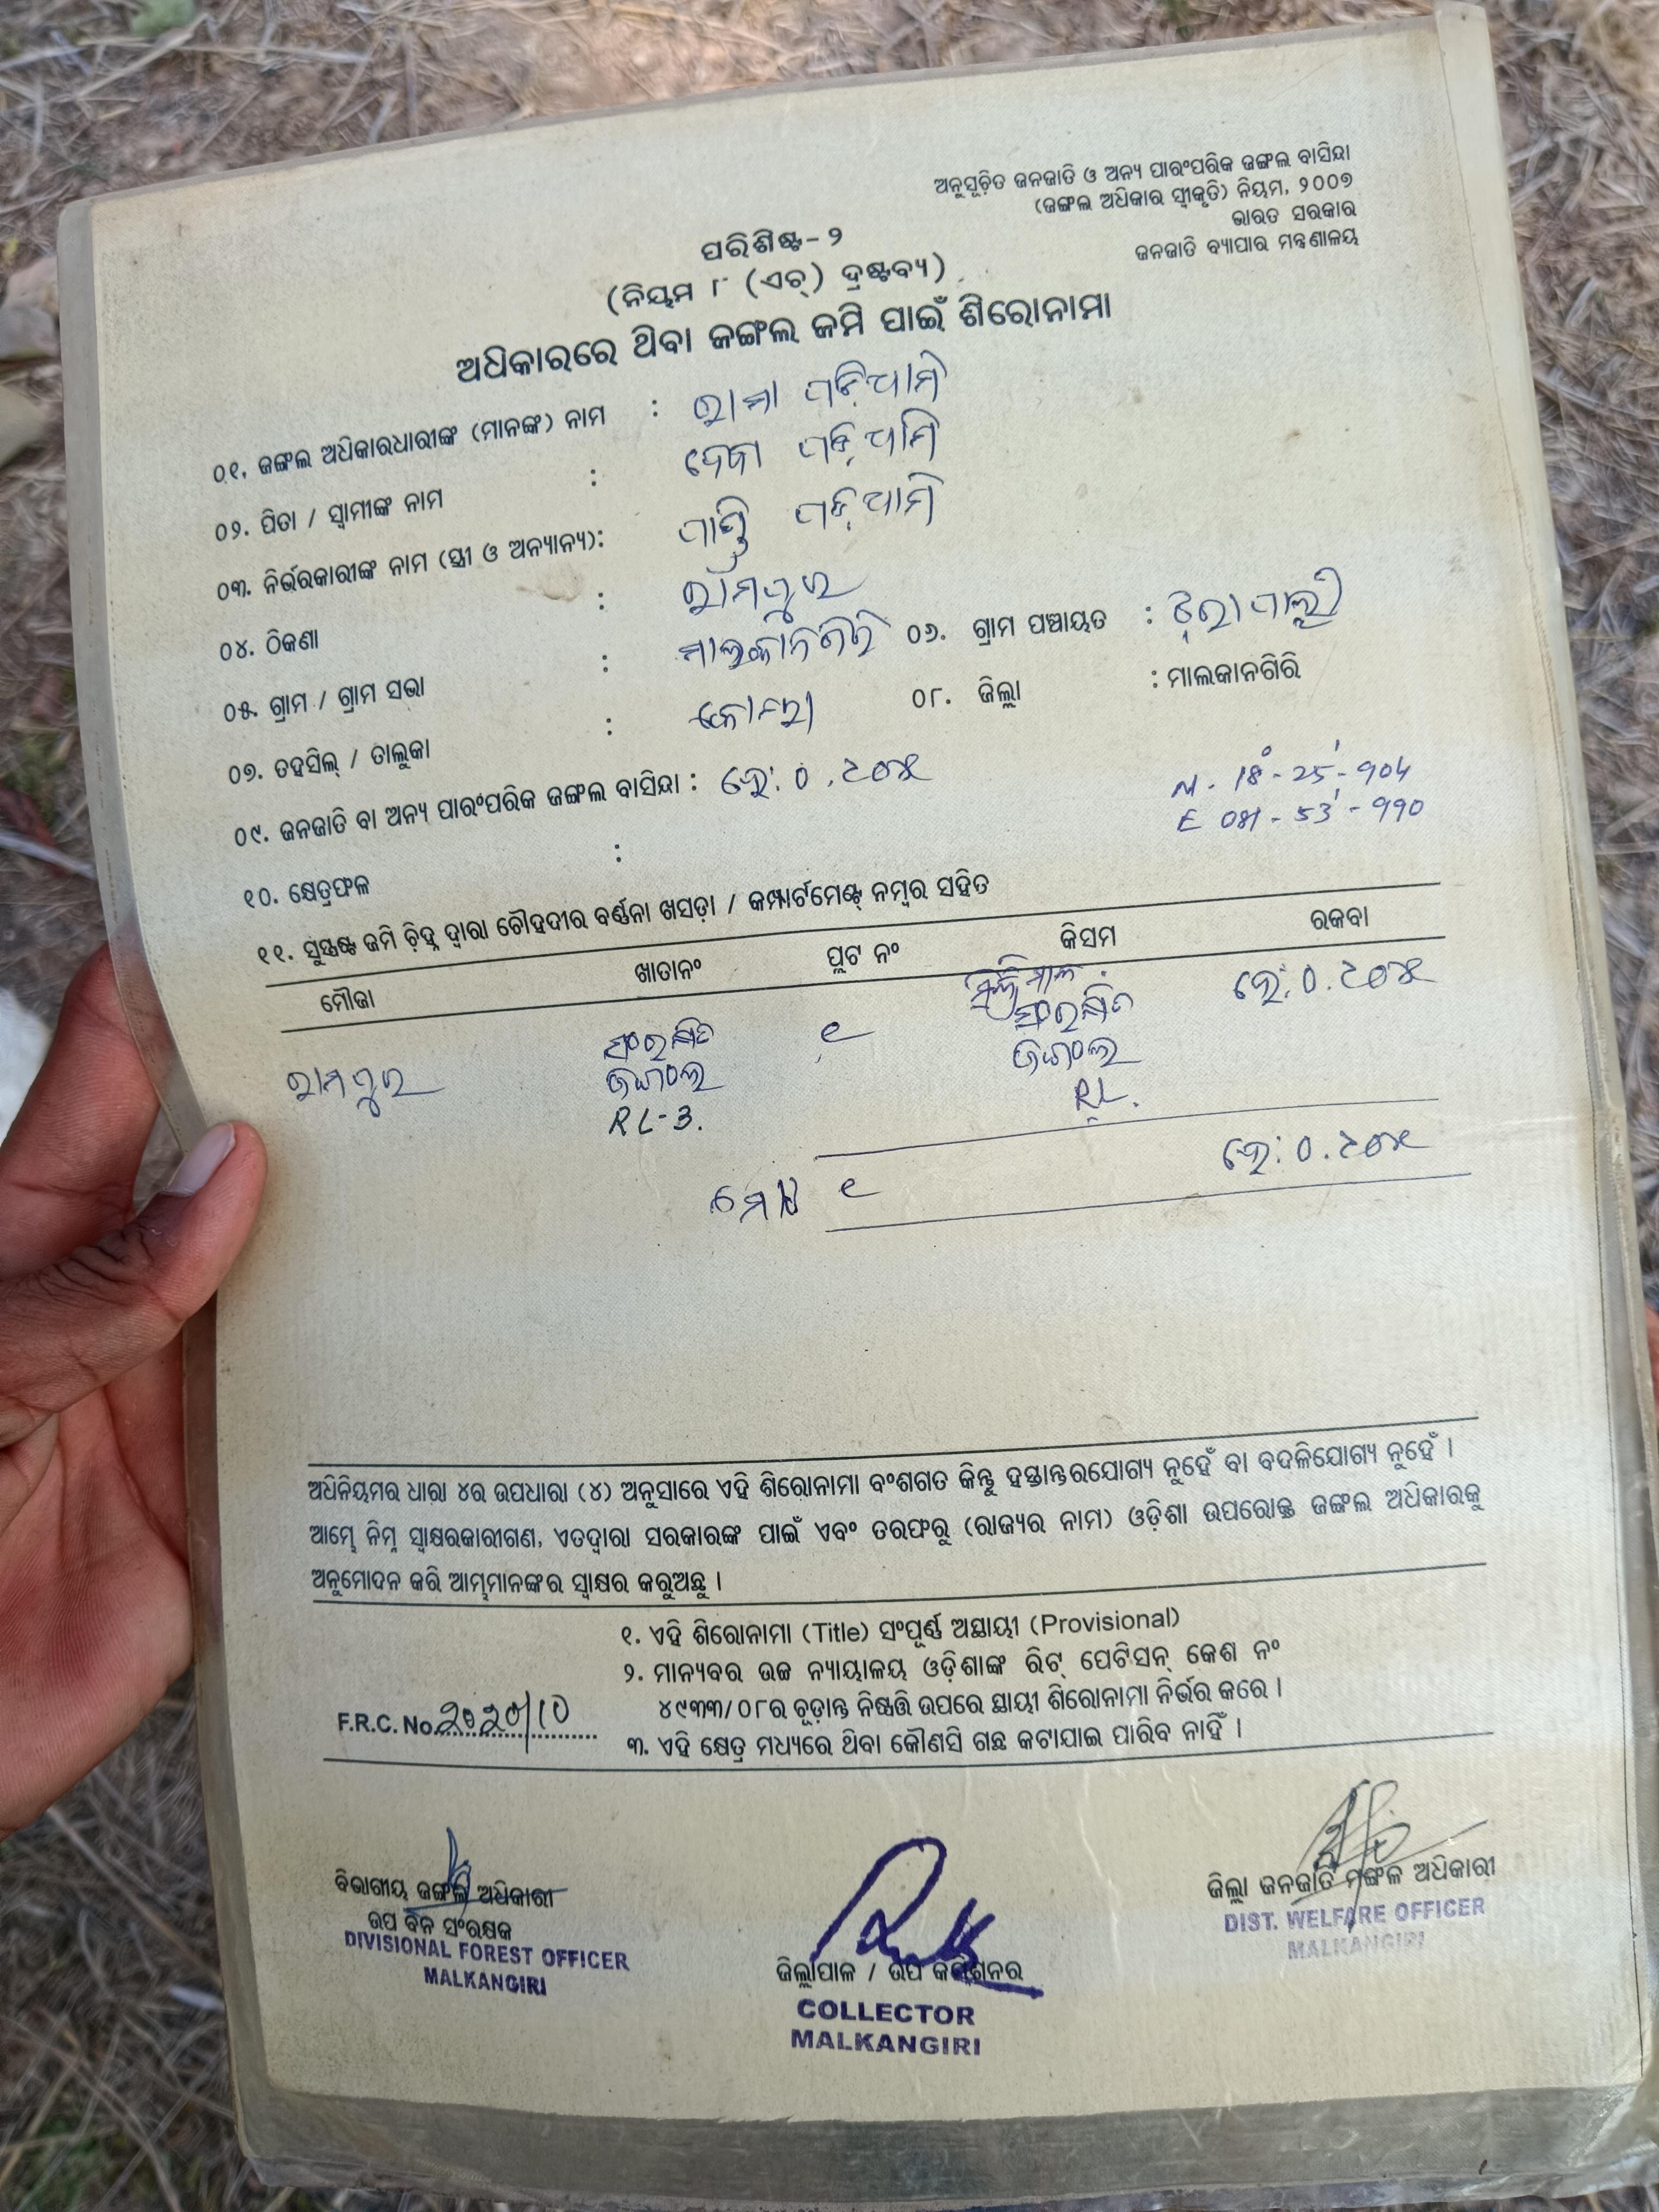 ଅନୁସୂଚିତ ଜନଜାତି ଓ ଅନ୍ୟ ପାରଂପରିକ ଜଙ୍ଗଲ ବାସିନ୍ଦା
(ଜଙ୍ଗଲ ଅଧିକାର ସ୍ୱୀକୃତି) ନିୟମ, ୨୦୦୭
ଭାରତ ସରକାର
ଜନଜାତି ବ୍ୟାପାର ମନ୍ତ୍ରଣାଳୟ
ପରିଶିଷ୍ଟ- ୨
(ନିୟମ ୮ (ଏଚ୍) ଦ୍ରଷ୍ଟବ୍ୟ)
ଅଧିକାରରେ ଥିବା ଜଙ୍ଗଲ ଜମି ପାଇଁ ଶିରୋନାମା
୦୧. ଜଙ୍ଗଲ ଅଧିକାରଧାରୀଙ୍କ (ମାନଙ୍କ) ନାମ : ରାମା ପଡ଼ିଆମି
୦୨. ପିତା / ସ୍ୱାମୀଙ୍କ ନାମ : ଦେବା ପଡ଼ିଆମି
୦୩. ନିର୍ଭରକାରୀଙ୍କ ନାମ (ସ୍ତ୍ରୀ ଓ ଅନ୍ୟାନ୍ୟ): ପଡ଼ିଆମି
୦୪. ଠିକଣା :
୦୫. ଗ୍ରାମ / ଗ୍ରାମ ସଭା : ରାମପୁର ୦୬. ଗ୍ରାମ ପଞ୍ଚାୟତ :
୦୭. ତହସିଲ୍ / ତାଲୁକା : ମାଲକାନଗିରି ୦୮. ଜିଲ୍ଲା : ମାଲକାନଗିରି
୦୯. ଜନଜାତି ବା ଅନ୍ୟ ପାରଂପରିକ ଜଙ୍ଗଲ ବାସିନ୍ଦା : କୋୟା
୧୦. କ୍ଷେତ୍ରଫଳ : ହେ: ୦.୧୦୪
N. 18°-25'-904
E 081-53'-990
୧୧. ସୁସ୍ପଷ୍ଟ ଜମି ଚିହ୍ନ ଦ୍ୱାରା ଚୌହଦୀର ବର୍ଣ୍ଣନା ଖସଡ଼ା / କମ୍ପାର୍ଟମେଣ୍ଟ୍ ନମ୍ବର ସହିତ
ମୌଜା ଖାତାନଂ ପ୍ଲଟ ନଂ କିସମ ରକବା
ରାମପୁର ସଂରକ୍ଷିତ ୧ ସଂରକ୍ଷିତ ହେ: ୦.୧୦୪
ଜଙ୍ଗଲ ଜଙ୍ଗଲ
RL-3. RL.
ମୋଟ ୧ ହେ: ୦.୧୦୪
ଅଧିନିୟମର ଧାରା ୪ର ଉପଧାରା (୪) ଅନୁସାରେ ଏହି ଶିରୋନାମା ବଂଶଗତ କିନ୍ତୁ ହସ୍ତାନ୍ତରଯୋଗ୍ୟ ନୁହେଁ ବା ବଦଳିଯୋଗ୍ୟ ନୁହେଁ ।
ଆମ୍ଭେ ନିମ୍ନ ସ୍ୱାକ୍ଷରକାରୀଗଣ, ଏତଦ୍ୱାରା ସରକାରଙ୍କ ପାଇଁ ଏବଂ ତରଫରୁ (ରାଜ୍ୟର ନାମ) ଓଡ଼ିଶା ଉପରୋକ୍ତ ଜଙ୍ଗଲ ଅଧିକାରକୁ
ଅନୁମୋଦନ କରି ଆମ୍ଭମାନଙ୍କର ସ୍ୱାକ୍ଷର କରୁଅଛୁ ।
୧. ଏହି ଶିରୋନାମା (Title) ସଂପୂର୍ଣ୍ଣ ଅସ୍ଥାୟୀ (Provisional)
୨. ମାନ୍ୟବର ଉଚ୍ଚ ନ୍ୟାୟାଳୟ ଓଡ଼ିଶାଙ୍କ ରିଟ୍ ପେଟିସନ୍ କେଶ ନଂ
୪୯୩୩/୦୮ର ଚୂଡ଼ାନ୍ତ ନିଷ୍ପତ୍ତି ଉପରେ ସ୍ଥାୟୀ ଶିରୋନାମା ନିର୍ଭର କରେ ।
୩. ଏହି କ୍ଷେତ୍ର ମଧ୍ୟରେ ଥିବା କୌଣସି ଗଛ କଟାଯାଇ ପାରିବ ନାହିଁ ।
F.R.C. No.
ବିଭାଗୀୟ ଜଙ୍ଗଲ ଅଧିକାରୀ
ଉପ ବନ ସଂରକ୍ଷକ
DIVISIONAL FOREST OFFICER
MALKANGIRI
ଜିଲ୍ଲାପାଳ / ଉପ କମିଶନର
COLLECTOR
MALKANGIRI
ଜିଲ୍ଲା ଜନଜାତି ମଙ୍ଗଳ ଅଧିକାରୀ
DIST. WELFARE OFFICER
MALKANGIRI